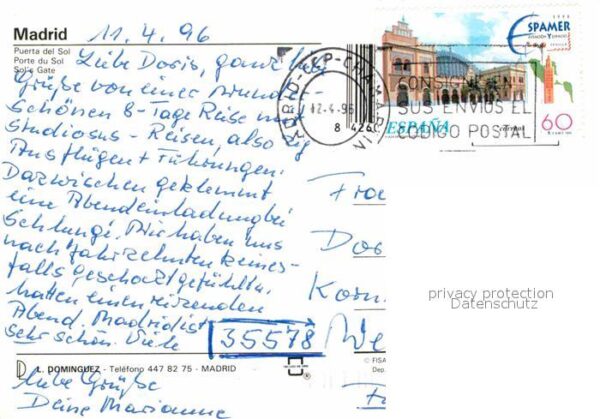 Madrid 11.4.96
Puerta del Sol
Porte du Sol
Sol's Gate
Liebe Doris, ganz
Grüße von einer wunder-
schönen 8-Tage Reise mit
Studiosus-Reisen, also
Ausflügen + Führungen.
Dazwischen geklemmt
eine Abendeinladung bei
Wir haben uns
nach Jahrzehnten keines-
falls geschockt gefühlt u.
hatten einen reizenden
Abend. Madrid ist
sehr schön. Viele
L. DOMINGUEZ - Teléfono 447 82 75 - MADRID
liebe Grüße
Deine Marianne
CHAMARTIN
12-4-96
8 426
CONSIGNE EN
SUS ENVIOS EL
CODIGO POSTAL
1996
ESPAMER
AVIACION Y ESPACIO
SEVILLA
ESPAÑA
CORREOS
60
Fra
Dos
Korn
35578 We
© FISA
Dep.
privacy protection
Datenschutz